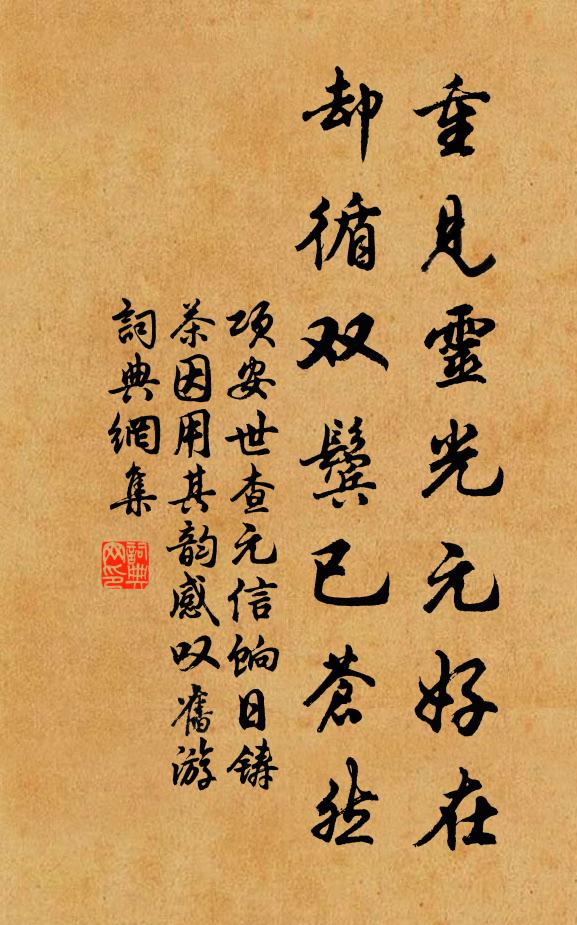 重见靈光元好在
却循双鬓已苍然
项安世查元信饷日铸
茶因用其韵感叹旧游
詞典網集
詞典
网印